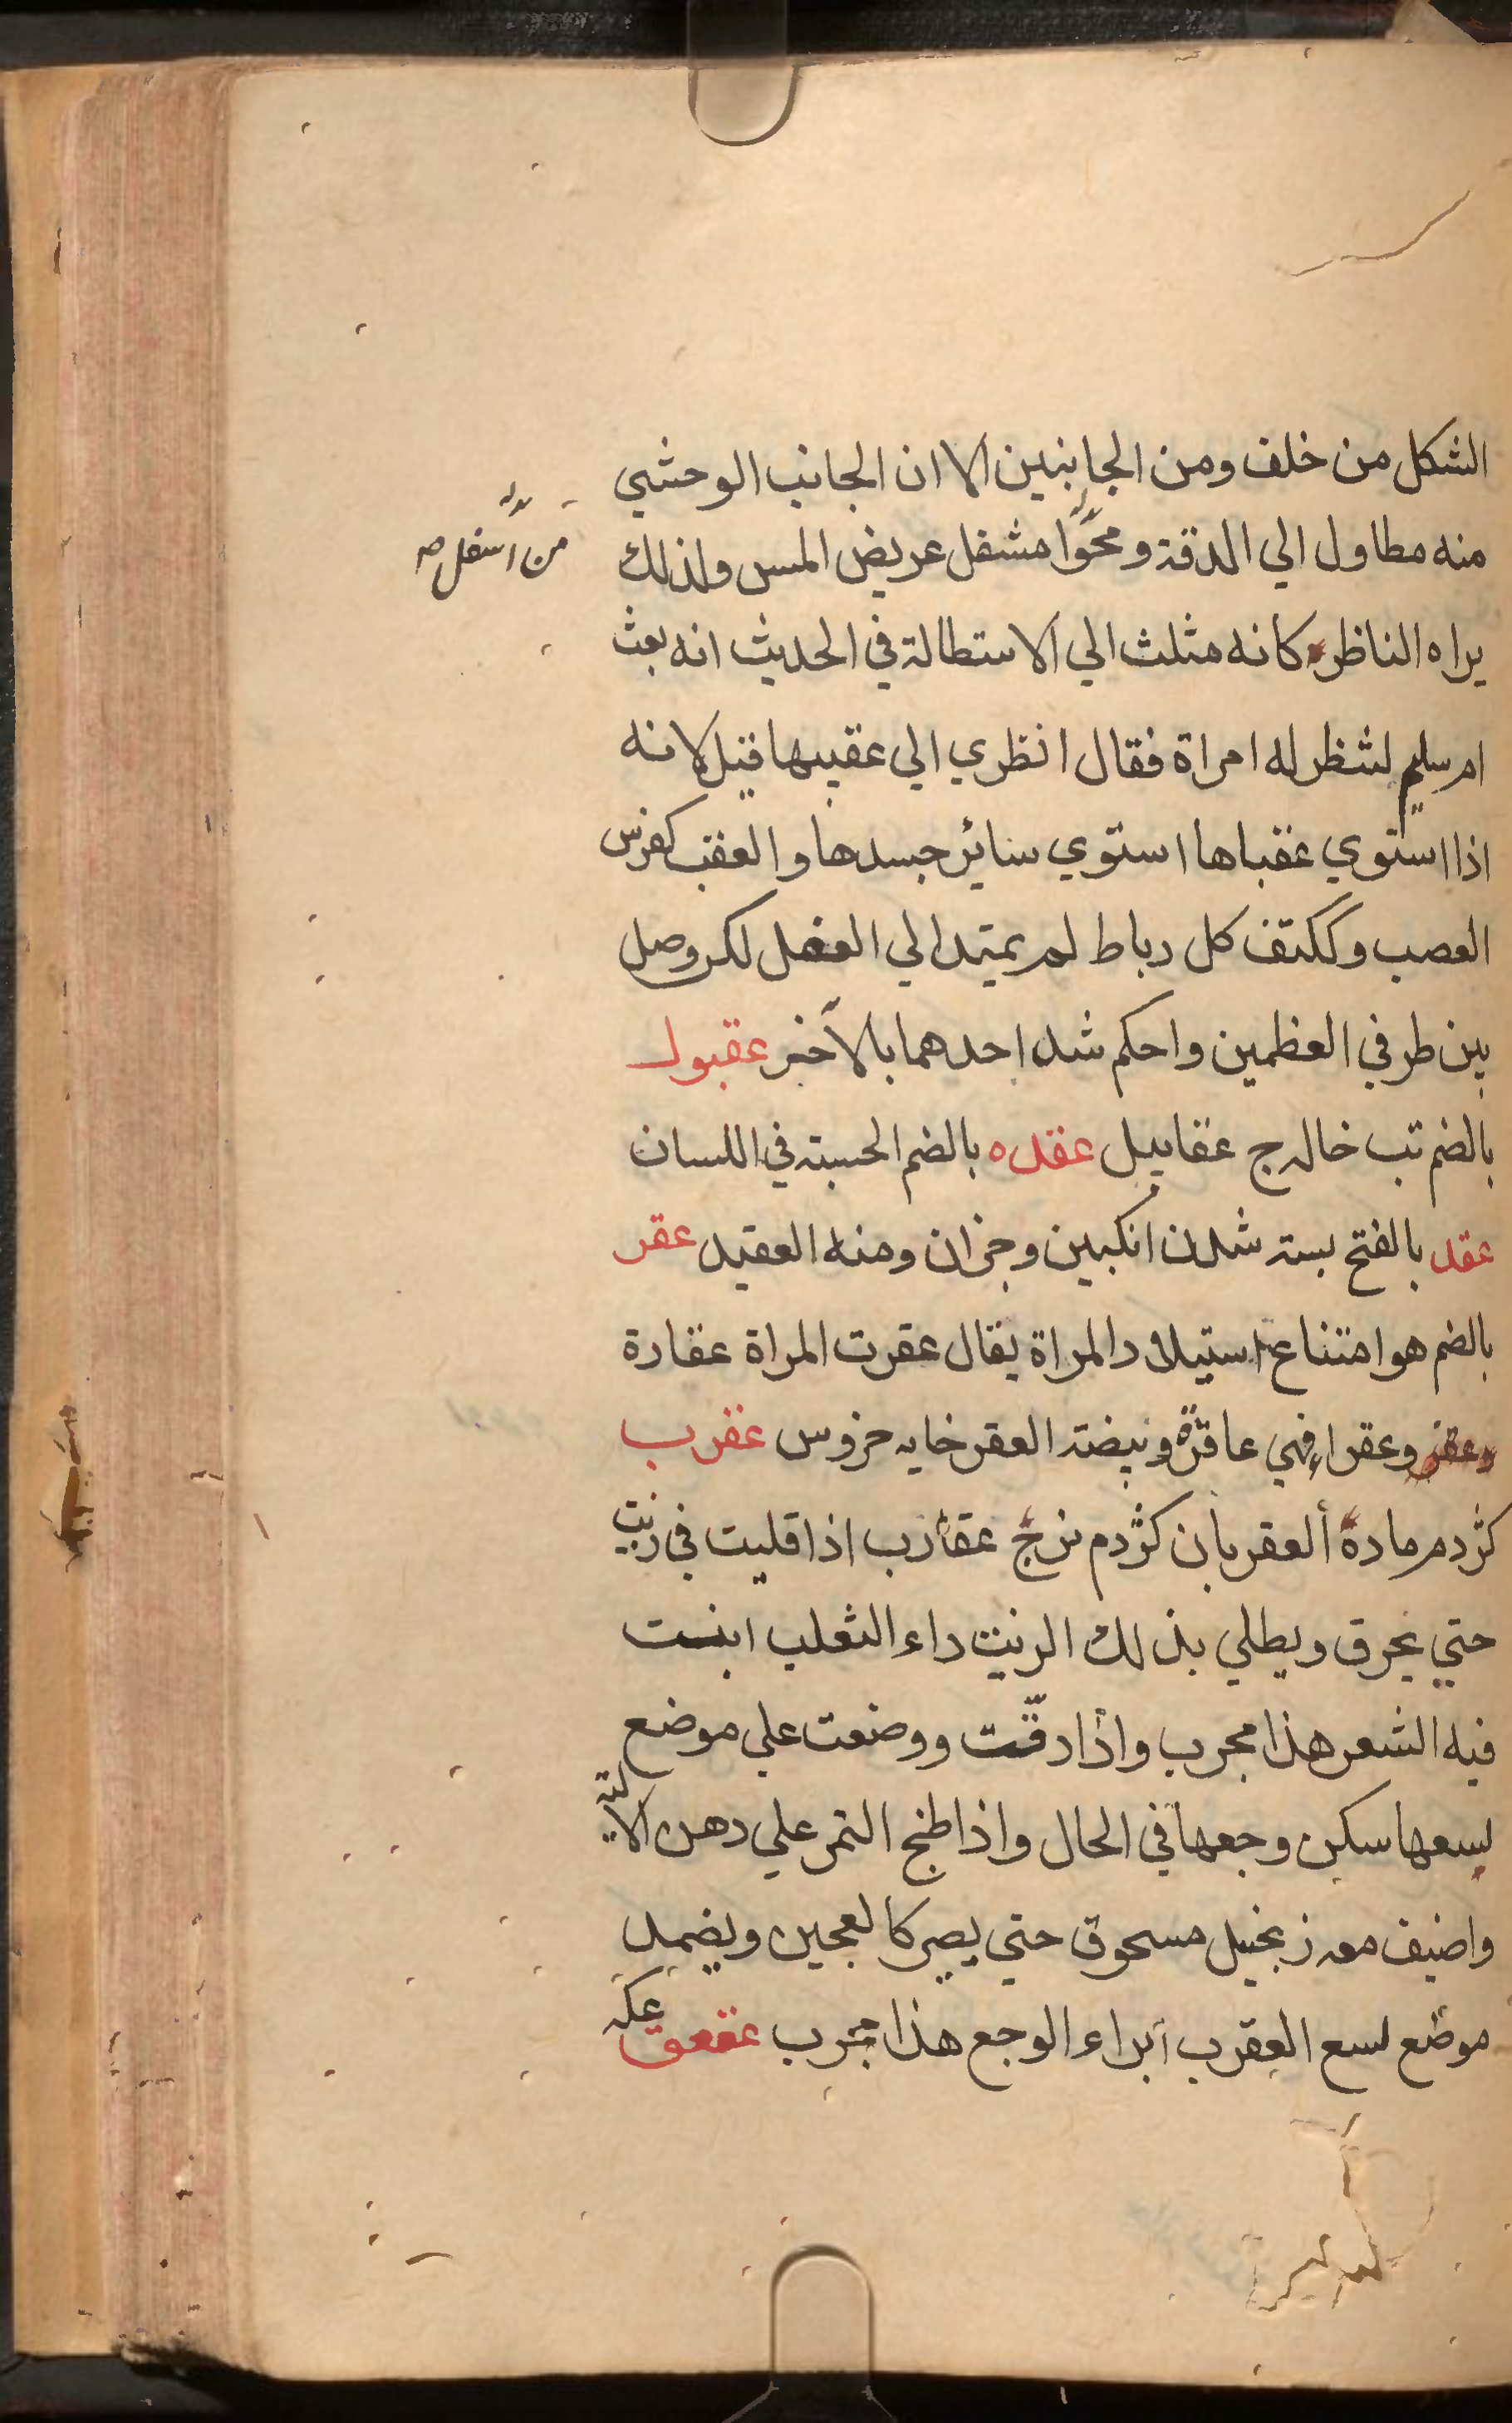 الشكل من خلف ومن الجانبين الا ان الجانب الوحشي
منه مطاول الي الدقة ومحوا مشفل عريض المس ولذلك
من اسفل صح
يراه الناظر كانه مثلث الي الاستطالة في الحديث انه بعث
ام سليم لتنظر له امراة فقال انظري الي عقبيها قيل لانه
اذا استوي عقباها استوي سائر جسدها والعقب كفرس
العصب وككتف كل رباط لم يمتد الي العضل لكن وصل
بين طرفي العظمين واحكم شد احدهما بالآخر عقبول
بالضم تب خاله ج عقابيل عقده بالضم الحبسة في اللسان
عقد بالفتح بسته شدن انكبين وجزان ومنه العقيد عقر
بالضم هو امتناع استيلاد المراة يقال عقرت المراة عقارة
وعقر وعقرا فهي عاقرة وبيضة العقر خايه خروس عقرب
كژدم ماده العقربان كژدم نر ج عقارب اذا قليت في زيت
حتي يحرق ويطلي بذلك الزيت داء الثعلب انبت
فيه الشعر هذا مجرب واذا دقت ووضعت علي موضع
لسعها سكن وجعها في الحال واذا طبخ التمر علي دهن الالية
واضيف معه زنجبيل مسحوق حتي يصير كالعجين ويضمد
موضع لسع العقرب ابراء الوجع هذا مجرب عقعق عكه